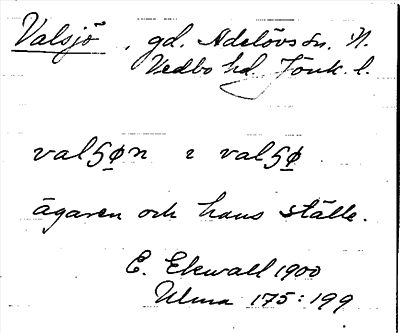 Valsjö, gd. Adelövs sn. N.
Vedbo hd. Jönk. l.
valʂøn i valʂø
ägaren och hans ställe.
E. Ekwall 1900
Ulma 175:199